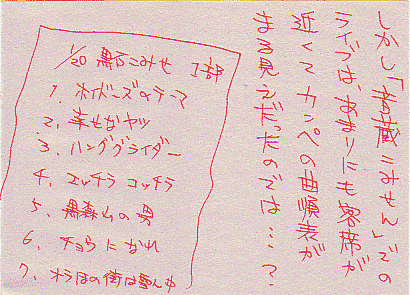 しかし「昔蔵こみせん」での
ライブは、あまりにも客席が
近くてカンペの曲順表が
まる見えだったのでは…?
1/20 黒石こみせ 1部
1. ホイドーズのテーマ
2. 幸せなヤツ
3. ハンググライダー
4. エッチラ コッチラ
5. 黒森山の男
6. チョウになれ
7. オラほの街は雪ん中